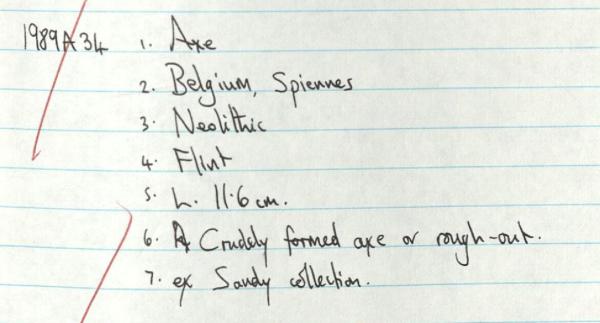 1989A34 1. Axe
2. Belgium, Spiennes
3. Neolithic
4. Flint
5. L. 11.6 cm.
6. A Crudely formed axe or rough-out.
7. ex Sandy collection.